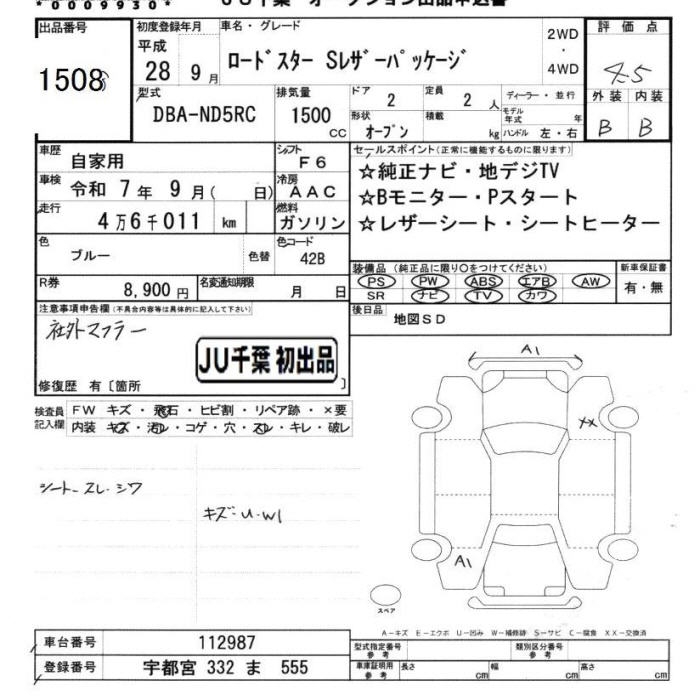 *0009930*
JU千葉 オークション出品申込書
出品番号 1508
初度登録年月 平成 28 9 月
車名・グレード ロードスター Sレザーパッケージ
2WD ・ 4WD
評価点 4.5
外装 内装
B B
型式 DBA-ND5RC
排気量 1500 CC
ドア 2
定員 2 人
ディーラー・並行
モデル年式 年
形状 オープン
積載 kg
ハンドル 左・右
車歴 自家用
シフト F6
セールスポイント(正常に機能するものに限ります)
☆純正ナビ・地デジTV
☆Bモニター・Pスタート
☆レザーシート・シートヒーター
車検 令和 7 年 9 月( 日)
冷房 AAC
走行 4万6千011 km
燃料 ガソリン
色 ブルー 色替
色コード 42B
装備品(純正品に限り〇をつけてください)
PS PW ABS エアB AW
SR ナビ TV カワ
新車保証書 有・無
R券 8,900 円
名変通知期限 月 日
後日品 地図SD
注意事項申告欄(不具合内容等は具体的に記入して下さい)
社外マフラー
JU千葉 初出品
修復歴 有〔箇所 〕
検査員記入欄
FW キズ・飛石・ヒビ割・リペア跡・×要
内装 キズ・汚レ・コゲ・穴・スレ・キレ・破レ
シートスレ・シワ
キズ・U・W1
A1
XX
A1
スペア
A-キズ E-エクボ U-凹み W-補修跡 S-サビ C-腐食 XX-交換済
車台番号 112987
登録番号 宇都宮 332 ま 555
型式指定番号 参考
類別区分番号 参考
車庫証明用 参考 長さ cm 幅 cm 高さ cm